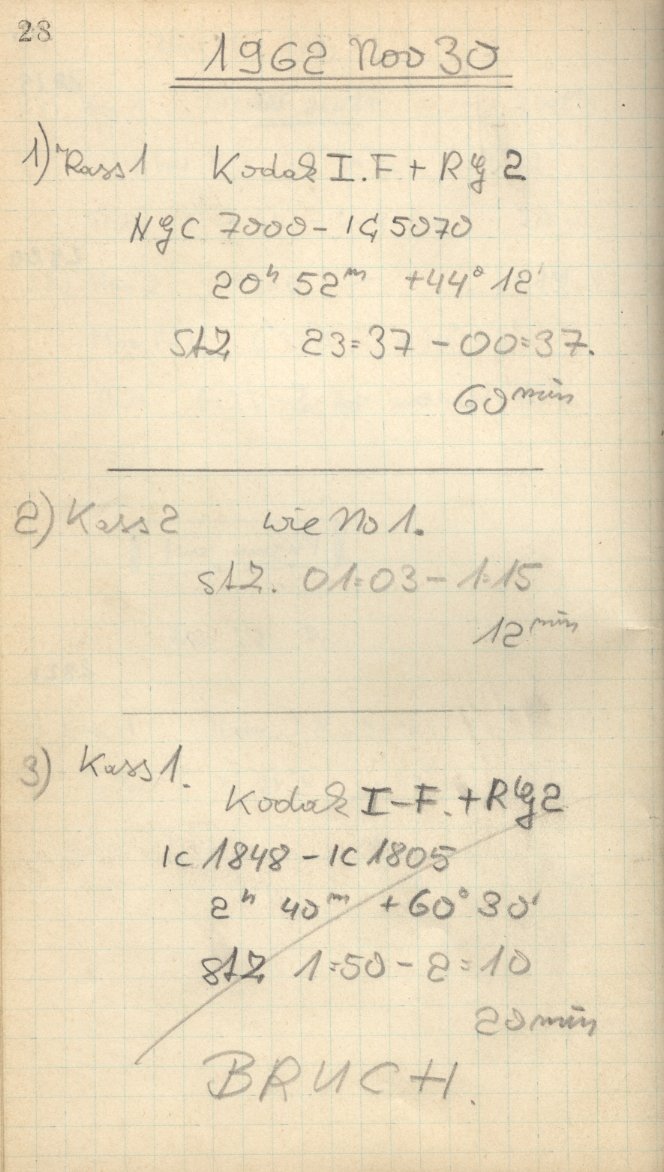 28
1962 Nov 30
1) Kass 1 Kodak I.F + RG 2
NGC 7000 - IC 5070
20h 52m +44° 12'
StZ 23=37 - 00=37.
60 min
2) Kass 2 wie No 1.
StZ. 01=03 - 1=15
12 min
3) Kass 1.
Kodak I-F. + RG2
IC 1848 - IC 1805
2h 40m +60° 30'
StZ 1=50 - 2=10
20 min
BRUCH.